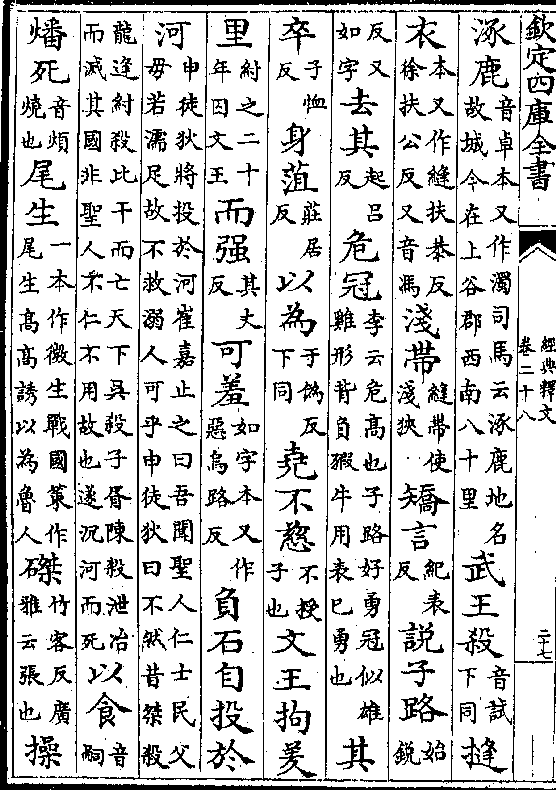 欽定四庫全書
經典釋文
卷二十八
二十七
涿鹿音卓本又作濁司馬云涿鹿地名故城今在上谷郡西南八十里武王殺音試下同縫
衣本又作縫扶恭反徐扶公反又音馮淺帶縫帶使淺狹矯言紀表反說子路始銳
反又如字去其起呂反危冠李云危高也子路好勇冠似雄雞形背負豭牛用表已勇也其
卒子恤反身菹莊居反以為于偽反下同堯不慈不授子也文王拘羑
里紂之二十年囚文王而强其丈反可羞如字本又作惡烏路反負石自投於
河申徒狄將投於河崔嘉止之曰吾聞聖人仁士民父母若濡足故不救溺人可乎申徒狄曰不然昔桀殺
龍逢紂殺比干而亡天下吳殺子胥陳殺泄冶而滅其國非聖人不仁不用故也遂沉河而死以食音嗣
燔死音煩燒也尾生一本作微生戰國策作尾生高高誘以為魯人磔竹客反廣雅云張也操